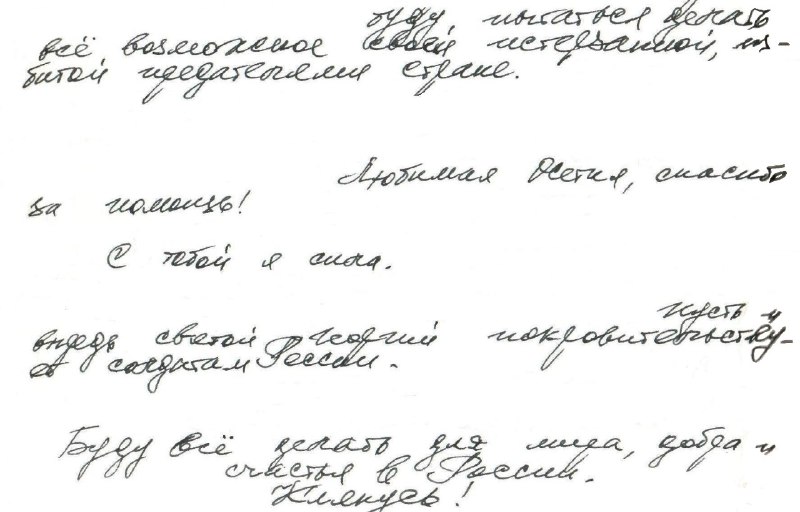 буду, пытаться делать
всё возможное своей истерзанной, из-
битой предателями стране.
Любимая Осетия, спасибо
за помощь!
С тобой я сила.
Пусть и
впредь святой Георгий покровительству-
ет солдатам России.
Буду всё делать для мира, добра и
счастья в России.
Клянусь!